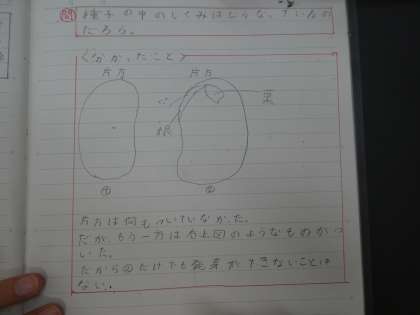 問 種子の中のしくみはどうなっているの
だろう。
〈分かったこと〉
片方 片方
葉
根
① ②
片方は何もついていなかった。
だが、もう一方は右上図のようなものがつ
いた。
だからのだけでも発芽ができないことは
ない。